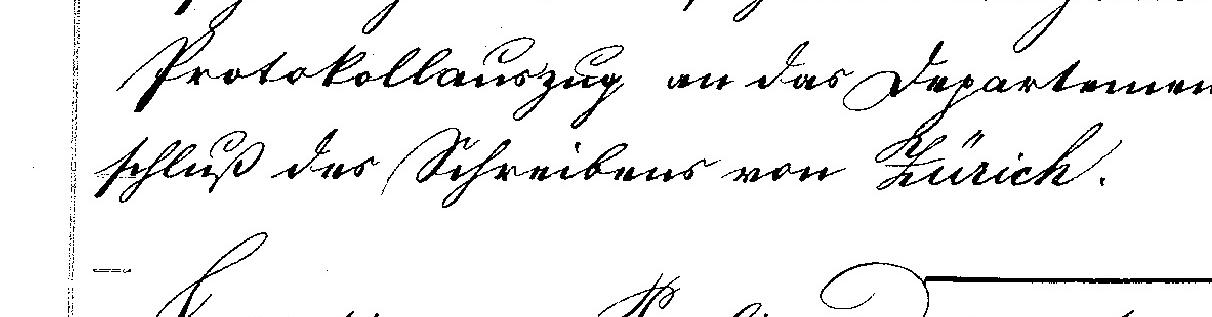 Protokollauszug an das Departemen
schluß des Schreibens von Zürich.